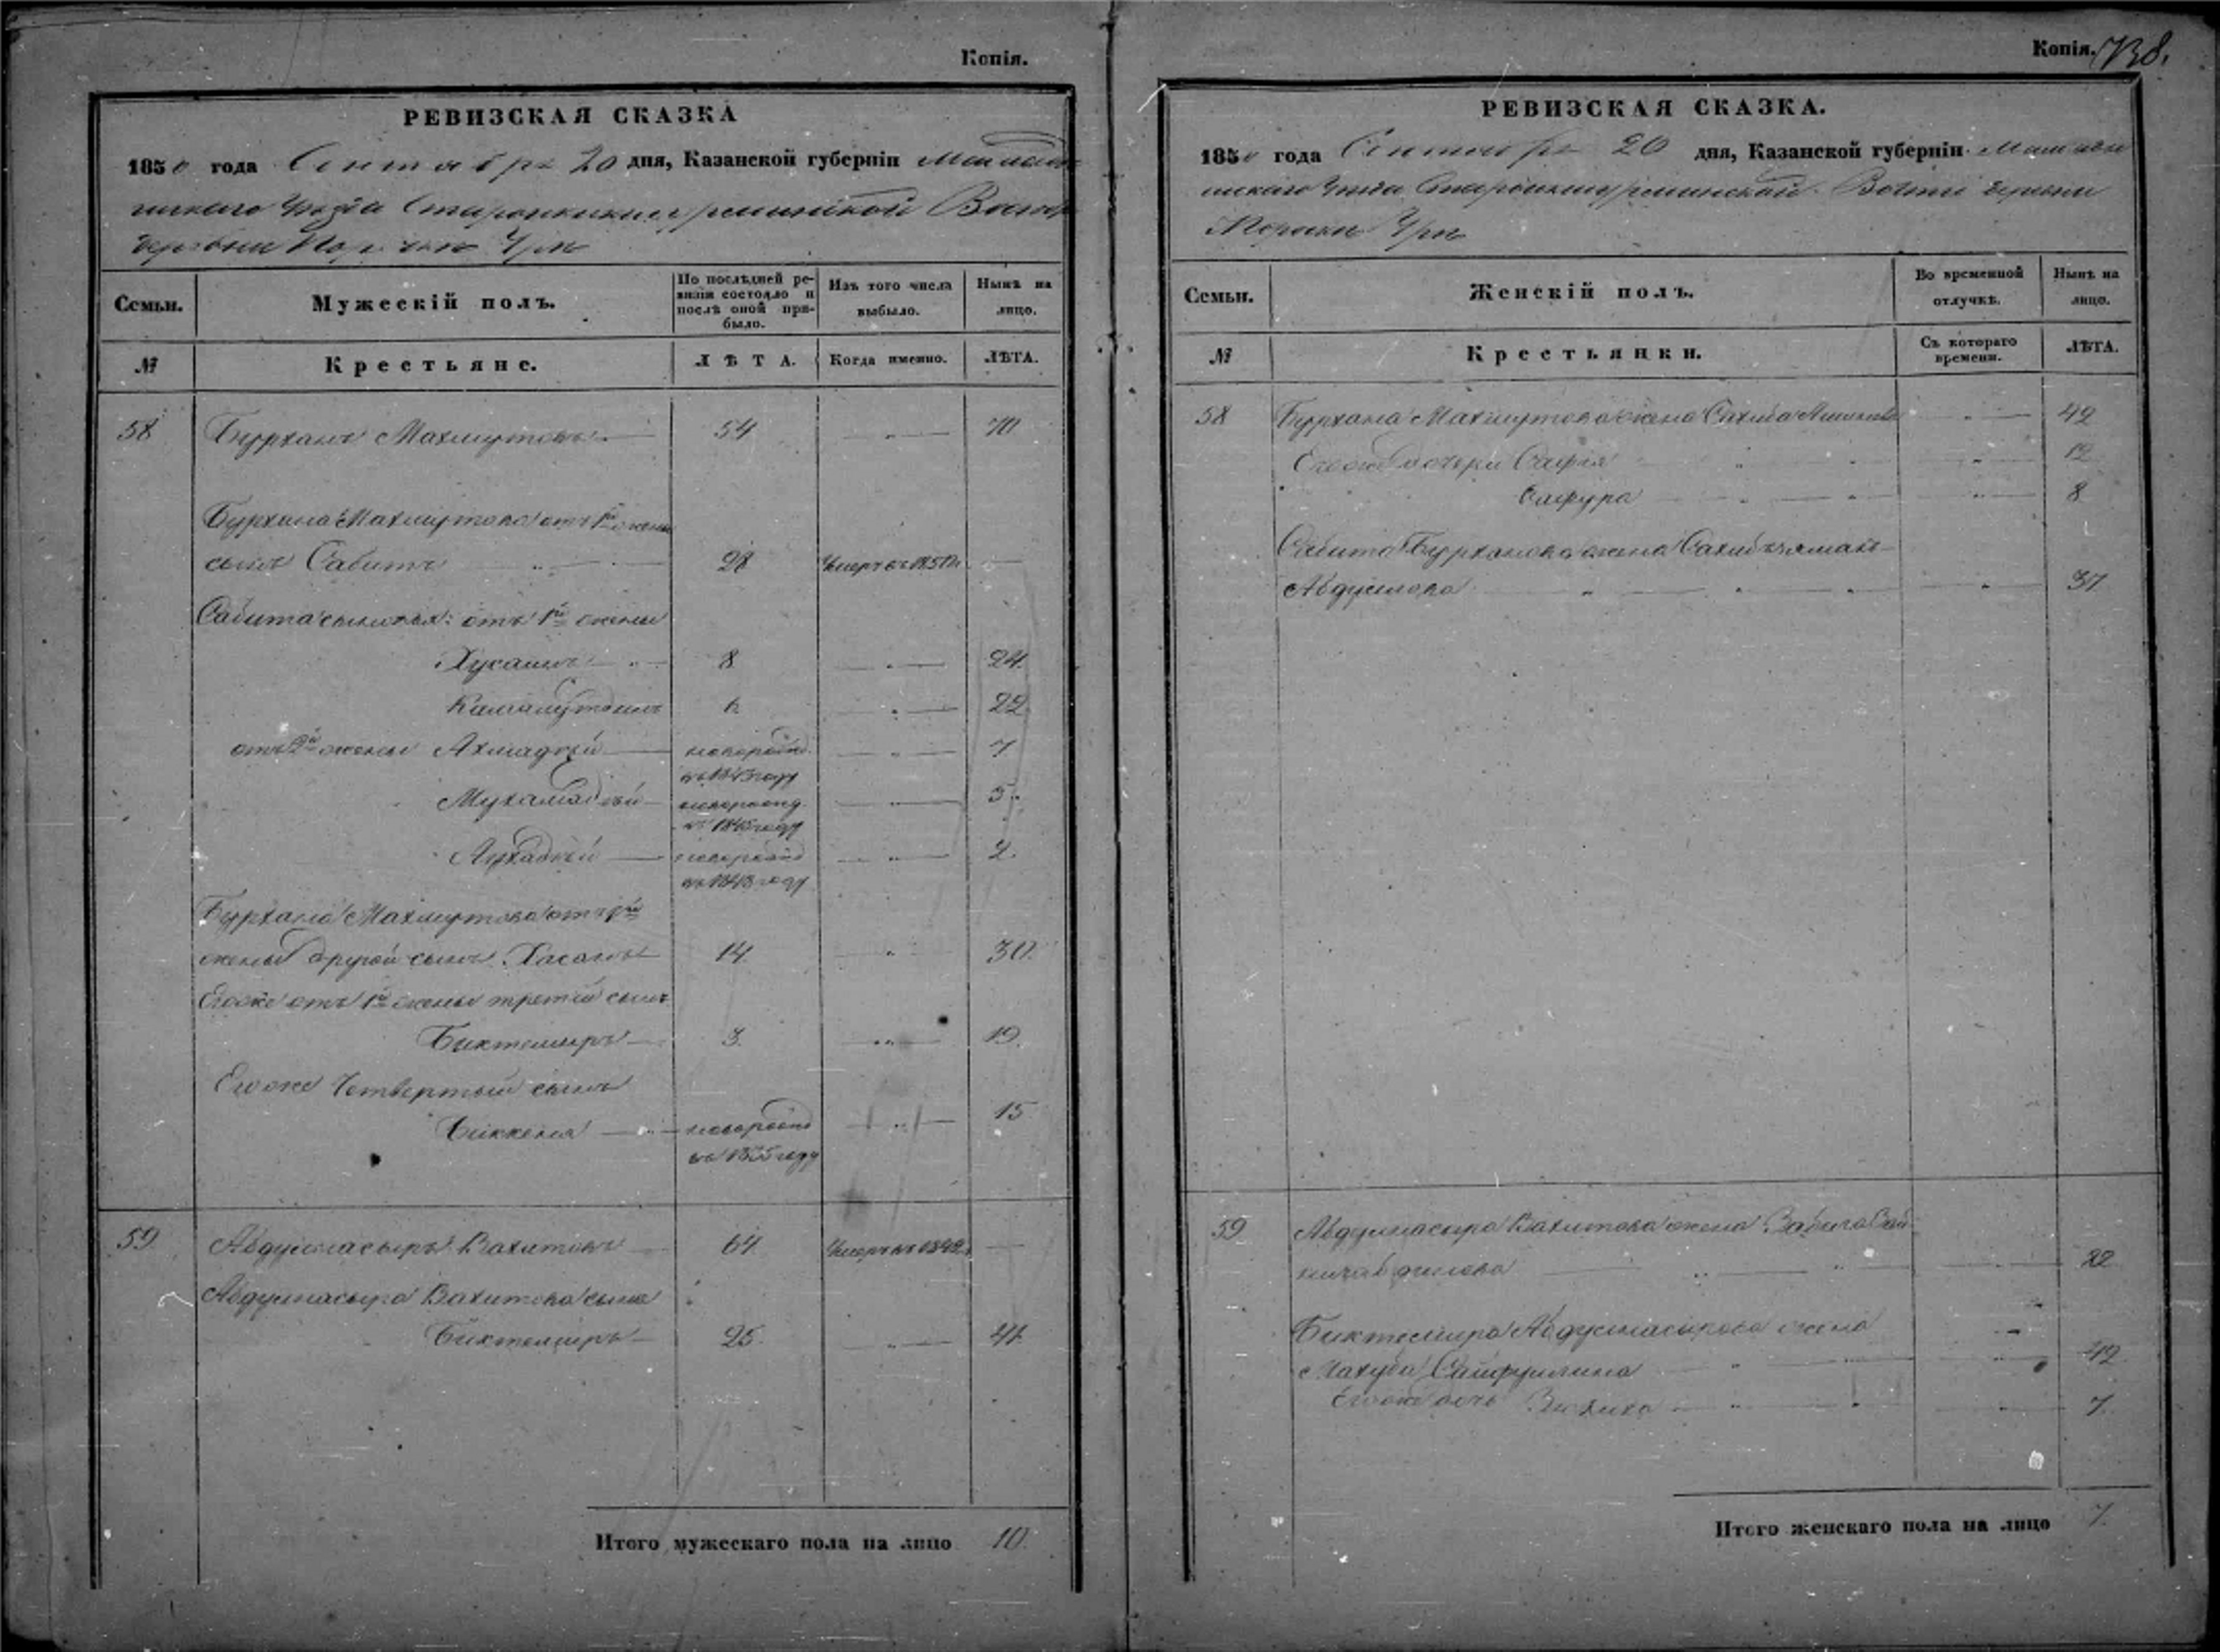 Копія.
РЕВИЗСКАЯ СКАЗКА
1850 года Сентября 20 дня, Казанской губерніи Мамадыш
скаго Уезда Волости
деревни
Семьи.
Мужескій полъ.
По послѣдней ре-
визіи состояло и
послѣ оной при-
было.
Изъ того числа
выбыло.
Нынѣ на
лицо.
№
Крестьяне.
ЛѢТА.
Когда именно.
ЛѢТА.
58 Бурханъ Махмутовъ 54 70
Бурхана Махмутова отъ 1й жены
сынъ Сабитъ 28 Умеръ въ
Сабита сыновья: отъ 1й жены
Хусаинъ 8 24
Камалутдинъ 6 22
отъ 2й жены Ахмадѣй новорожд. 7
въ 1843 году
Мухамадѣй новорожд. 5
въ 1845 году
новорожд 2
въ 1848 году
Бурхана Махмутова отъ
жены другой сынъ Хасанъ 14 30
Его же отъ 1й жены третій сынъ
Биктемиръ 3 19
Его же Четвертый сынъ
Биккеня новорожд 15
въ 1835 году
59 Абдулнасыръ Вахитовъ 64 Умеръ въ
Абдулнасыра Вахитова сынъ
Биктемиръ 25 41
Итого мужескаго пола на лицо 10
Копія. 738.
РЕВИЗСКАЯ СКАЗКА.
1850 года Сентября 20 дня, Казанской губерніи Мамады
шскаго Уезда Волости деревни
Семьи.
Женскій полъ.
Во временной
отлучкѣ.
Нынѣ на
лицо.
№
Крестьянки.
Съ котораго
времени.
ЛѢТА.
58 Бурхана Махмутова жена Сахиба 42
Его же дочери Сафія 12
Сафура 8
Сабита Бурханова жена
37
59 Абдулнасыра Вахитова жена
22
Биктемира Абдулнасырова жена
Махуба Сайфуллина 42
Его же дочь 7
Итого женскаго пола на лицо 7